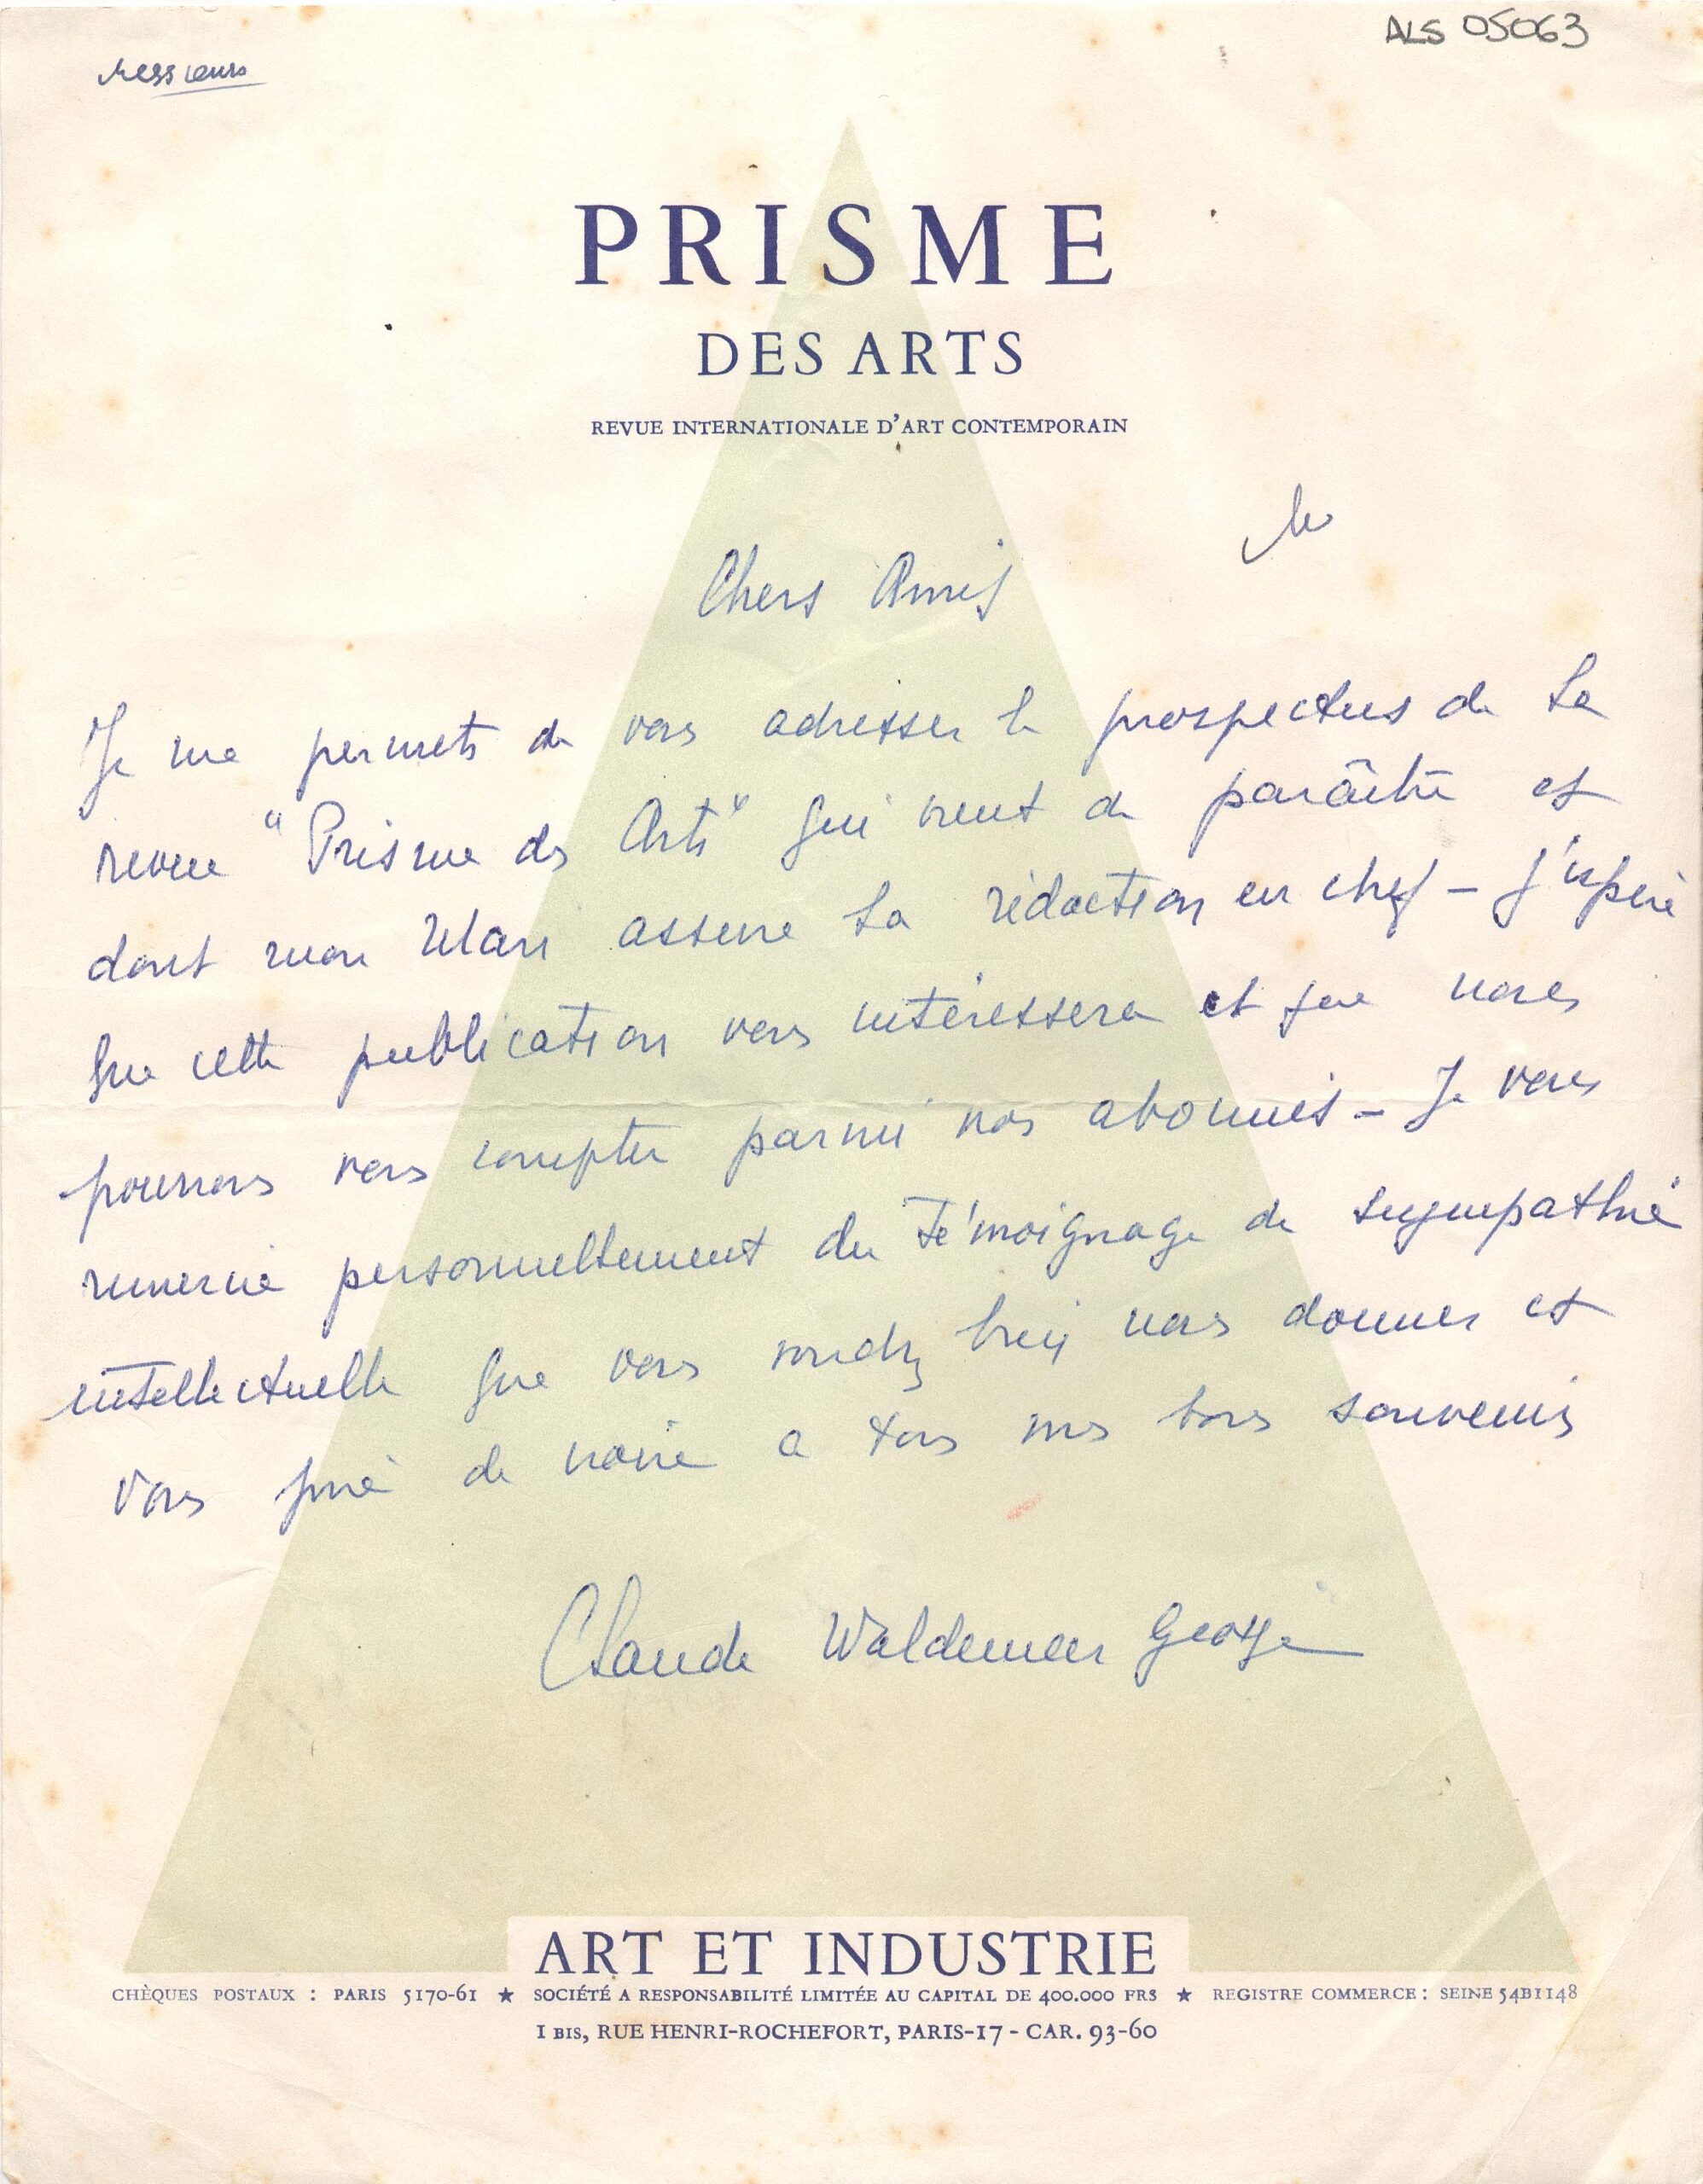 ALS 05063
Messieurs
PRISME
DES ARTS
REVUE INTERNATIONALE D'ART CONTEMPORAIN
le
Chers Amis
Je me permets de vous adresser le prospectus de la
revue "Prisme des Arts" qui vient de paraître et
dont mon Mari assure la rédaction en chef - J'espère
que cette publication vous intéressera et que nous
pourrons vous compter parmi nos abonnés - Je vous
remercie personnellement du témoignage de sympathie
intellectuelle que vous voudrez bien nous donner et
vous prie de croire a tous mes bons souvenirs
Claude Waldemar George
ART ET INDUSTRIE
CHÈQUES POSTAUX : PARIS 5170-61 ★ SOCIÉTÉ A RESPONSABILITÉ LIMITÉE AU CAPITAL DE 400.000 FRS ★ REGISTRE COMMERCE : SEINE 54B1148
1 BIS, RUE HENRI-ROCHEFORT, PARIS-17 - CAR. 93-60